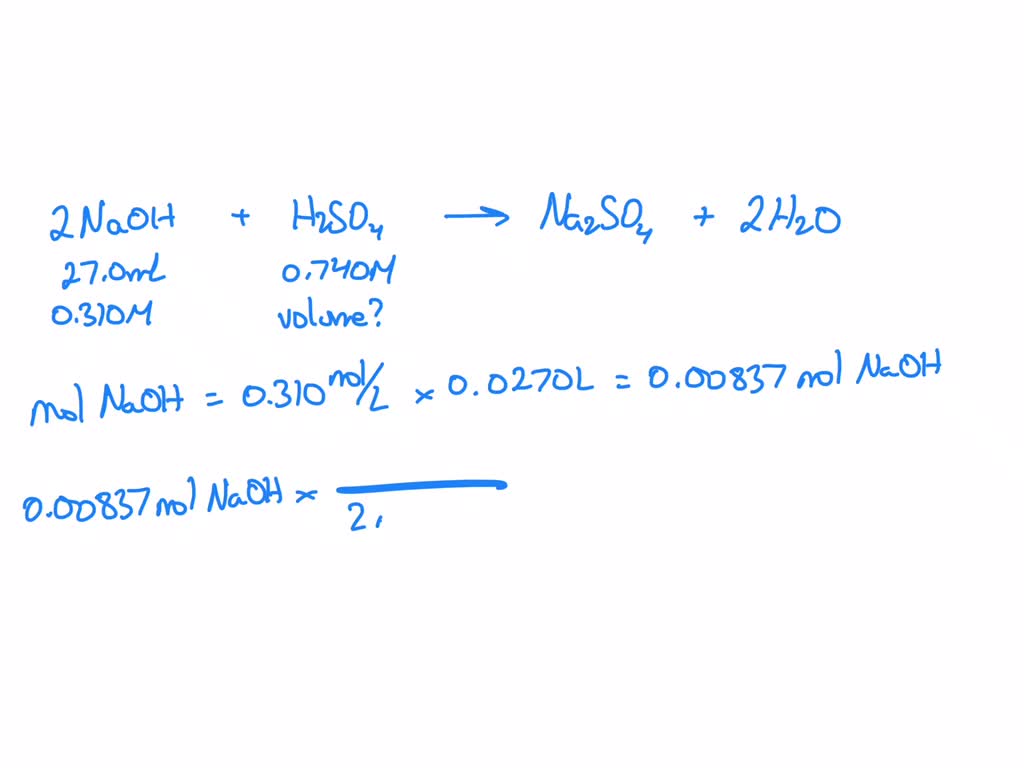 2NaOH + H₂SO₄ → Na₂SO₄ + 2H₂O
27.0mL 0.740M
0.310M volume?
mol NaOH = 0.310 mol/L × 0.0270L = 0.00837 mol NaOH
0.00837 mol NaOH ×
2